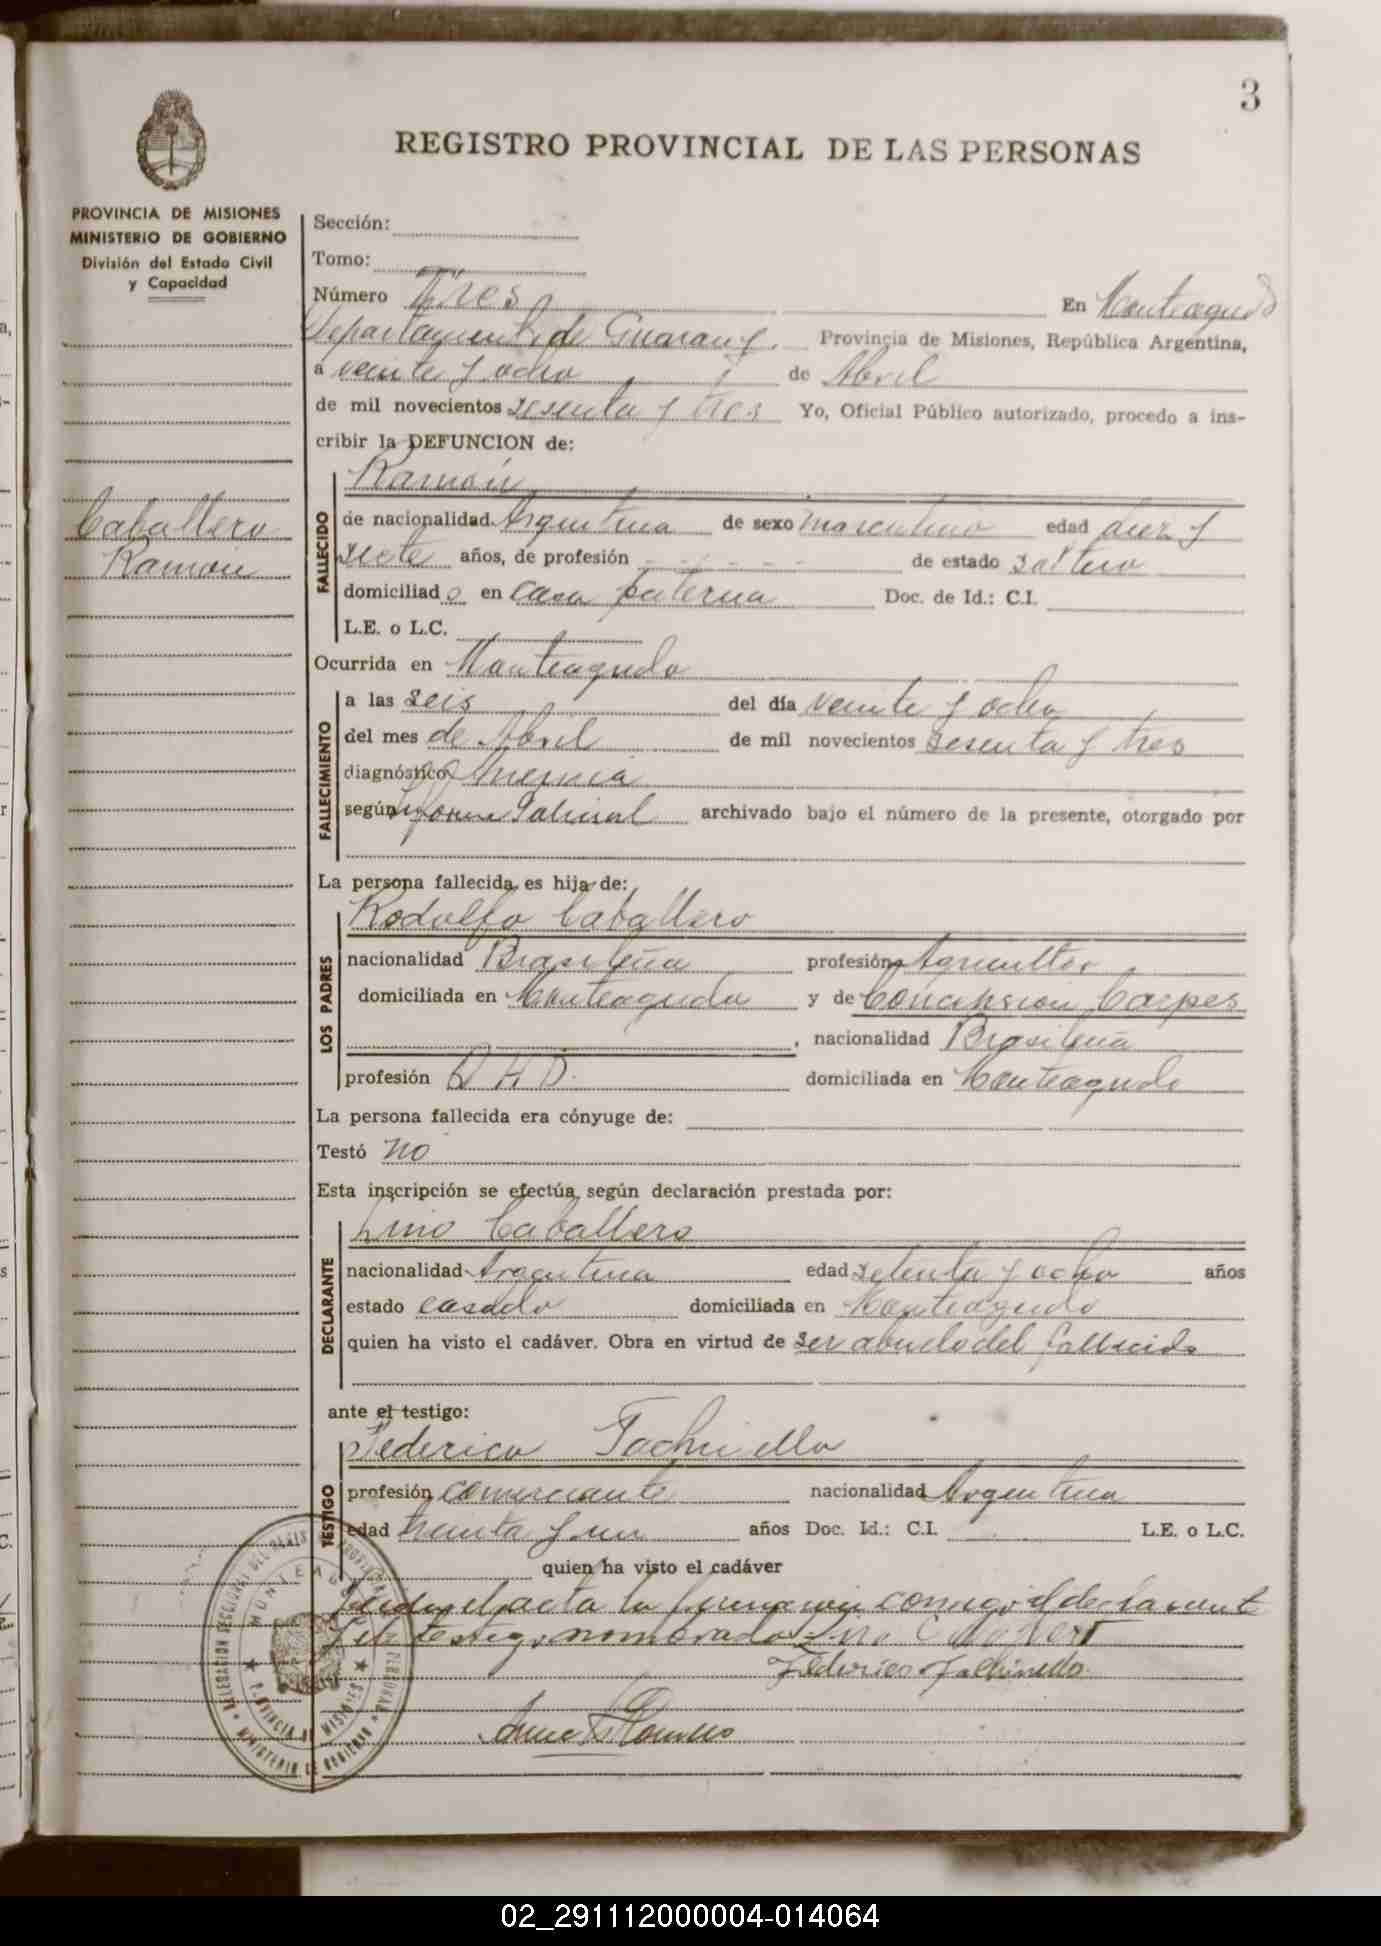 3
REGISTRO PROVINCIAL DE LAS PERSONAS
PROVINCIA DE MISIONES
MINISTERIO DE GOBIERNO
División del Estado Civil
y Capacidad
Caballero
Ramón
Sección:
Tomo:
Número Tres En Monteagudo
Departamento de Guaraný. Provincia de Misiones, República Argentina,
a veinte y ocho de Abril
de mil novecientos sesenta y tres Yo, Oficial Público autorizado, procedo a ins-
cribir la DEFUNCION de:
FALLECIDO
Ramón
de nacionalidad Argentina de sexo masculino edad diez y
siete años, de profesión de estado soltero
domiciliado en casa paterna Doc. de Id.: C.I.
L.E. o L.C.
Ocurrida en Monteagudo
FALLECIMIENTO
a las seis del día veinte y ocho
del mes de Abril de mil novecientos sesenta y tres
diagnóstico Anemia
según Informe Policial archivado bajo el número de la presente, otorgado por
La persona fallecida es hija de:
LOS PADRES
Rodolfo Caballero
nacionalidad Brasileña profesión Agricultor
domiciliada en Monteagudo y de Concepsion Carpes
, nacionalidad Brasileña
profesión Q.H.D. domiciliada en Monteagudo
La persona fallecida era cónyuge de:
Testó no
Esta inscripción se efectúa según declaración prestada por:
DECLARANTE
Lino Caballero
nacionalidad Argentina edad setenta y ocho años
estado casado domiciliada en Monteagudo
quien ha visto el cadáver. Obra en virtud de ser abuelo del fallecido
ante el testigo:
TESTIGO
Federico Fachinello
profesión comerciante nacionalidad Argentina
edad treinta y un años Doc. Id.: C.I. L.E. o L.C.
quien ha visto el cadáver
Leida el acta la firman con migo el declarante
y el testigo nombrado Lino
Federico Fachinello
MONTEAGUDO
PROVINCIA DE MISIONES
MINISTERIO DE GOBIERNO
02_291112000004-014064